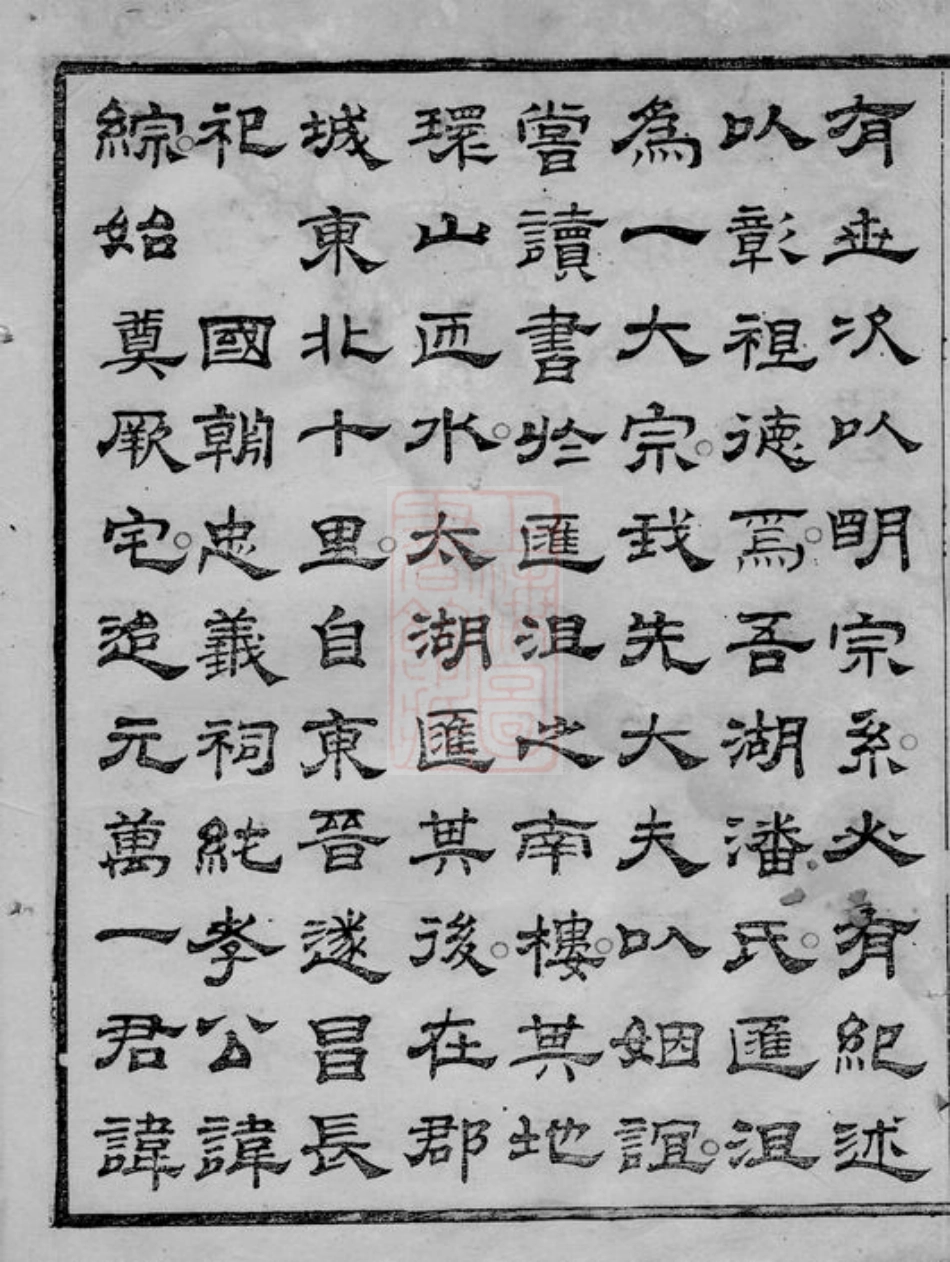 有世次以明宗系必有紀述
以彰祖德焉吾湖潘氏匯沮
為一大宗我先大夫以姻誼
嘗讀書於匯沮之南樓其地
環山匝水太湖匯其後在郡
城東北十里自東晉遂昌長
祀　國朝忠義祠純孝公諱
綜始奠厥宅迨元萬一君諱